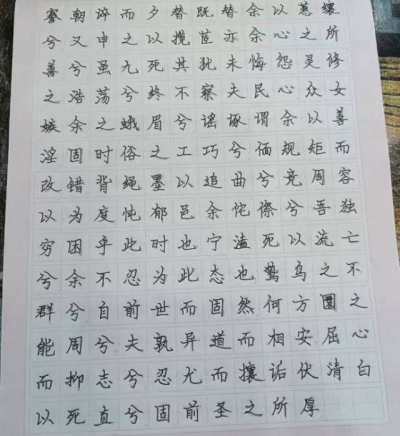 謇朝谇而夕替既替余以蕙纕
兮又申之以揽茝亦余心之所
善兮虽九死其犹未悔怨灵修
之浩荡兮终不察夫民心众女
嫉余之蛾眉兮谣诼谓余以善
淫固时俗之工巧兮偭规矩而
改错背绳墨以追曲兮竞周容
以为度忳郁邑余侘傺兮吾独
穷困乎此时也宁溘死以流亡
兮余不忍为此态也鸷鸟之不
群兮自前世而固然何方圜之
能周兮夫孰异道而相安屈心
而抑志兮忍尤而攘诟伏清白
以死直兮固前圣之所厚